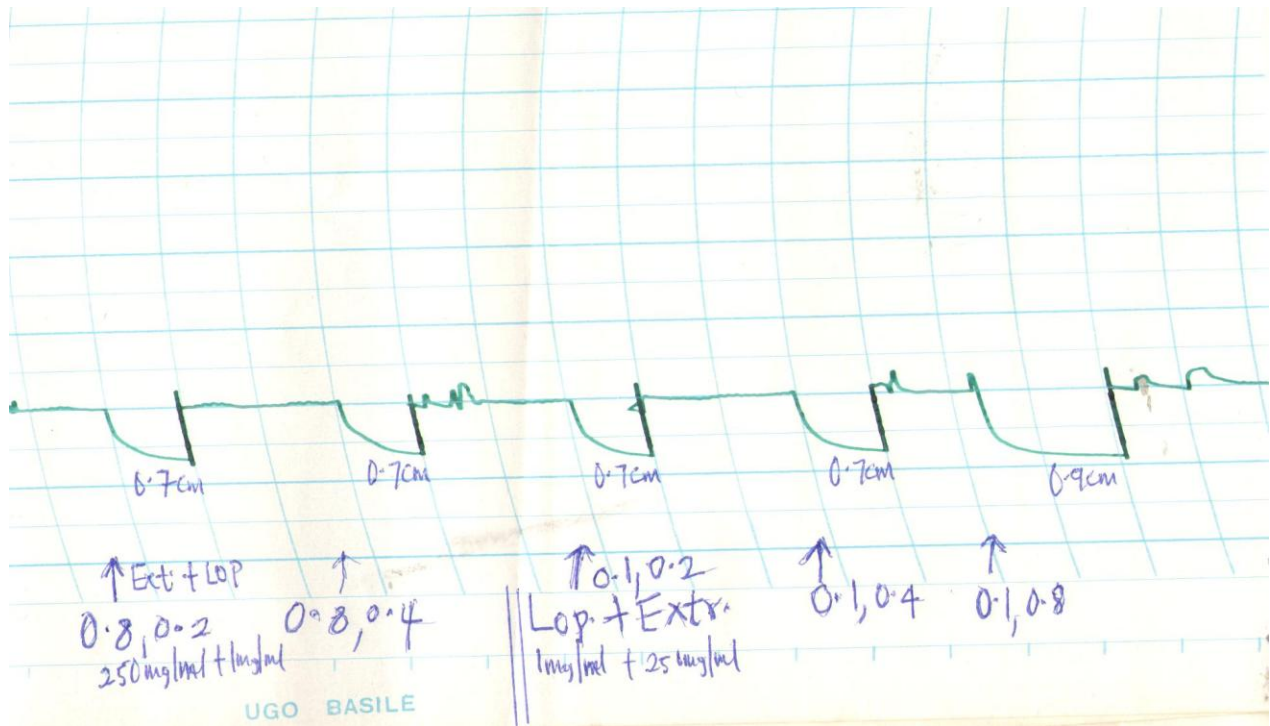 0.7cm
0.7cm
0.7cm
0.7cm
0.9cm
↑ Ext + LOP
0.8, 0.2
250mg/ml + 1mg/ml
↑
0.8, 0.4
↑ 0.1, 0.2
Lop. + Extr.
1mg/ml + 250mg/ml
↑
0.1, 0.4
↑
0.1, 0.8
UGO BASILE